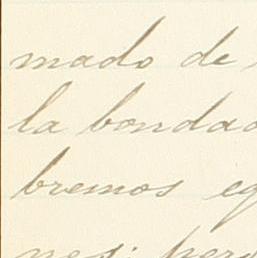 mado de
la bondad
bremos eq
nes; pero